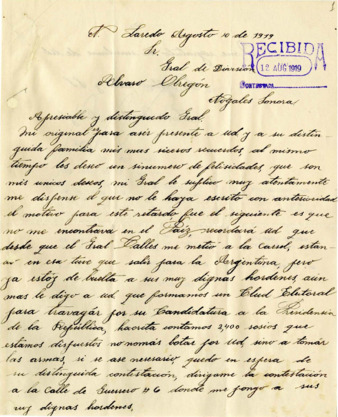 1
N. Laredo Agosto 10 de 1919
RECIBIDA
12 AUG 1919
Sr.
Gral de Division
Alvaro Obregón
Nogales Sonora
Apresiable y distinguido Gral.
Mi original para aser presente a ud y a su distin-
guida familia mis mas siceros recuerdos, al mismo
tiempo les deseo un sinumero de felisidades, que son
mis unicos deseos, mi Gral le suplico muy atentamente
me dispense el que no le haya escrito con anterioridad
el motivo para este retardo fue el siguiente es que
no me encontrava en el Paiz recordará ud que
desde que el Gral Calles me metio a la Carsel, estan-
do en esa tuve que salir para la Argentina, pero
ya estoy de buelta a sus muy dignas hordenes aun
mas le digo a ud que formamos un Club Eletoral
para travagar por su Candidatura a la Presidencia
de la República, haorita contamos 2,400 sosios que
estamos dispuestos no nomás botar por ud sino a tomar
las armas, si se ase nesario quedo en espera de
su distinguida contestación, dirigame la contestación
a la Calle de Guerrero 46 donde me pongo a sus
muy dignas hordenes.